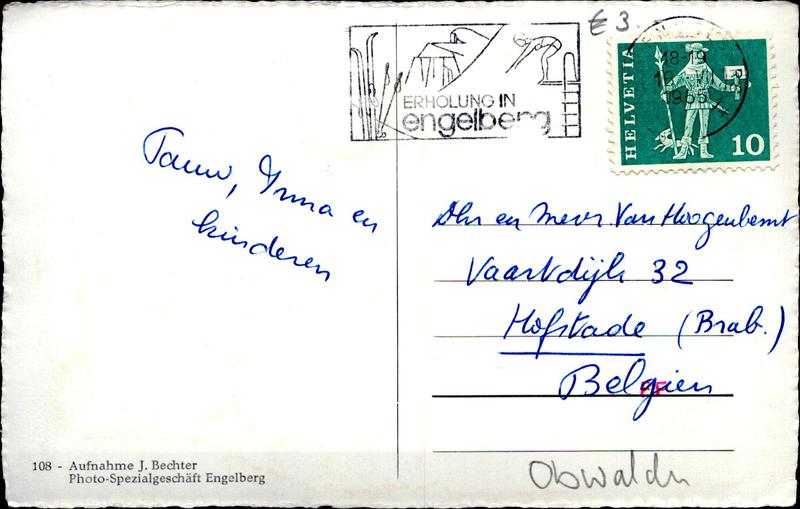 € 3.
ERHOLUNG IN
engelberg
18-19
1963
HELVETIA
10
Irma en
kinderen
Dhr en Mevr Van Hoogenbemt
Vaartdijk 32
Hofstade (Brab.)
Belgien
108 - Aufnahme J. Bechter
Photo-Spezialgeschäft Engelberg
Obwalden